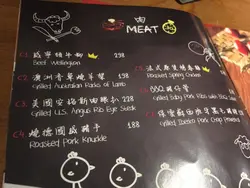 肉
MEAT
C1. 威寧頓牛柳 298
Beef Wellington
C2. 澳洲香草燒羊架 188
Grilled Australian Racks of Lamb
C3. 美國安格斯肉眼扒 238
Grilled U.S. Angus Rib Eye Steak
C4. 燒德國咸豬手 188
Roasted Pork Knuckle
C5. 法式原隻燒春雞
Roasted Spring Chicken
C6. BBQ 豬仔骨
Grilled Baby Pork Ribs with BBQ
C7.
Grilled Iberico Pork Chop